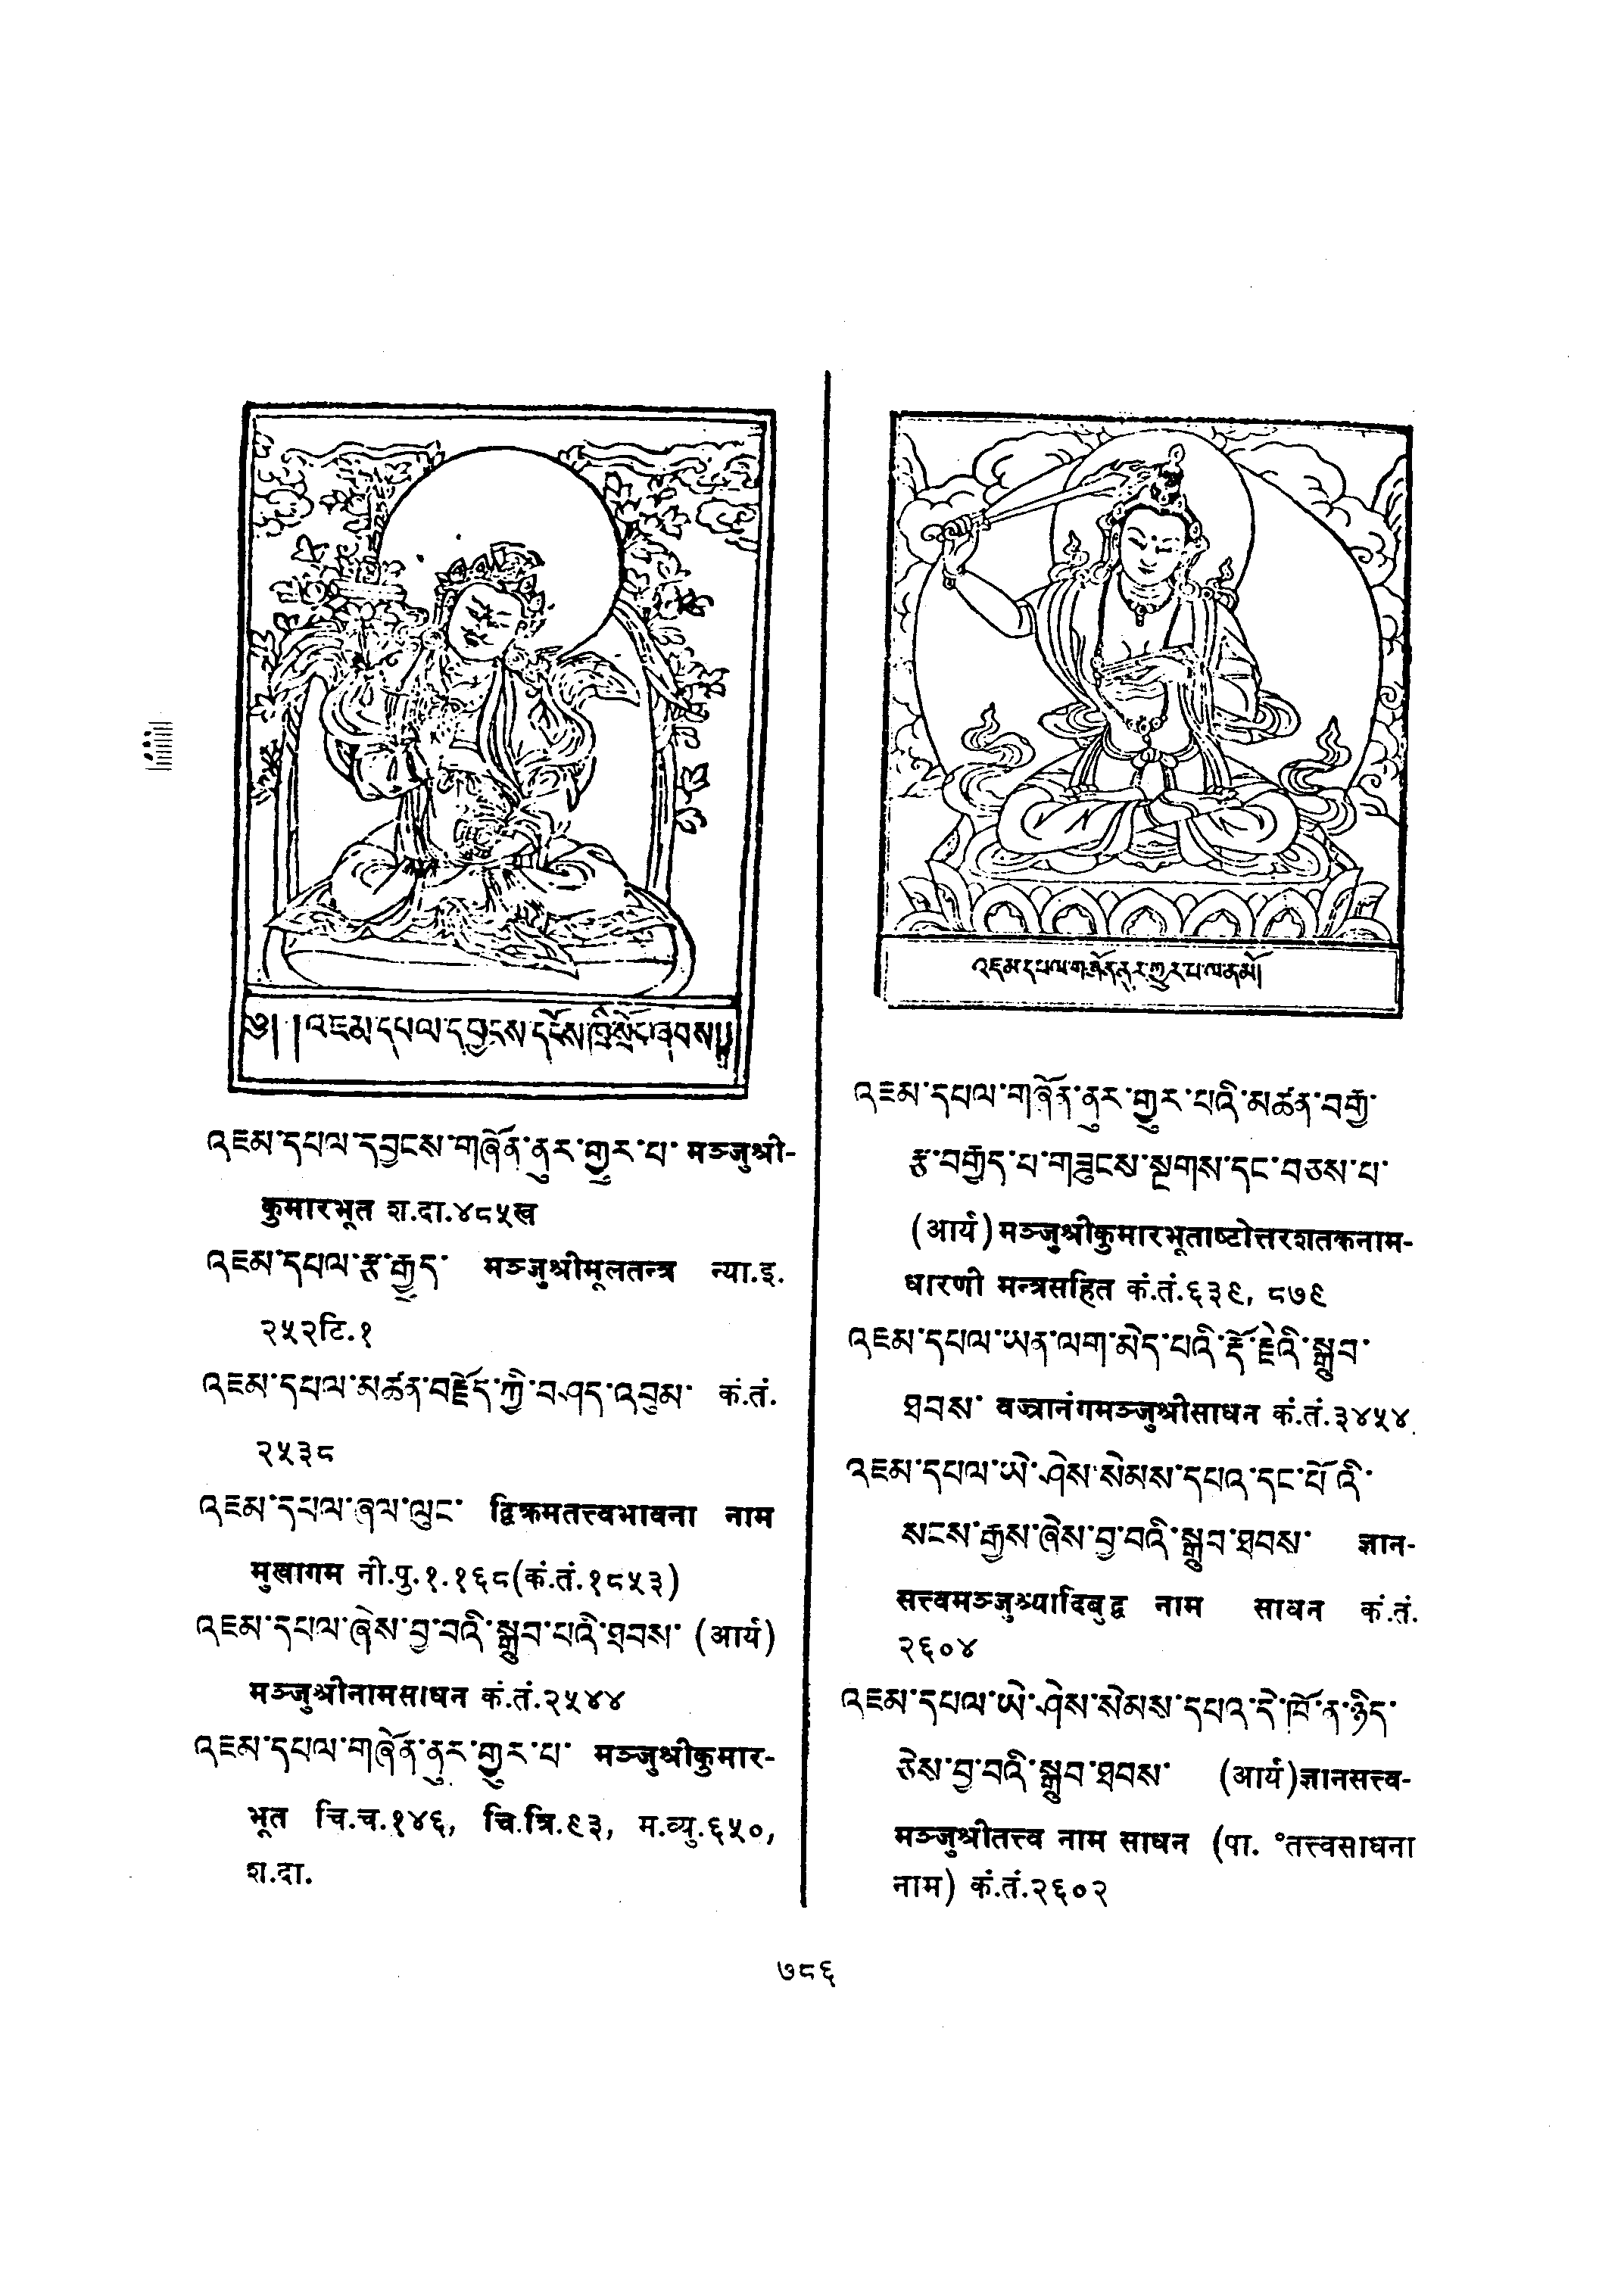 ༄༅། །འཇམ་དཔལ་དབྱངས་དངོས་ཁྲི་སྲོང་ཞབས།།
འཇམ་དཔལ་དབྱངས་གཞོན་ནུར་གྱུར་པ་ मञ्जुश्री-
कुमारभूत श.दा.४८५ख
འཇམ་དཔལ་རྩ་རྒྱུད་ मञ्जुश्रीमूलतन्त्र न्या.इ.
२५२टि.१
འཇམ་དཔལ་མཚན་བརྗོད་ཀྱི་བཤད་འབུམ་ कं.तं.
२५३८
འཇམ་དཔལ་ཞལ་ལུང་ द्विक्रमतत्त्वभावना नाम
मुखागम नी.पु.१.१६८(कं.तं.१८५३)
འཇམ་དཔལ་ཞེས་བྱ་བའི་སྒྲུབ་པའི་ཐབས་ (आर्य)
मञ्जुश्रीनामसाधन कं.तं.२५४४
འཇམ་དཔལ་གཞོན་ནུར་གྱུར་པ་ मञ्जुश्रीकुमार-
भूत चि.च.१४६, चि.त्रि.९३, म.व्यु.६५०,
श.दा.
འཇམ་དཔལ་གཞོན་ནུར་གྱུར་པ་ལ་ན་མོ།
འཇམ་དཔལ་གཞོན་ནུར་གྱུར་པའི་མཚན་བརྒྱ་
རྩ་བརྒྱད་པ་གཟུངས་སྔགས་དང་བཅས་པ་
(आर्य) मञ्जुश्रीकुमारभूताष्टोत्तरशतकनाम-
धारणी मन्त्रसहित कं.तं.६३९, ८७९
འཇམ་དཔལ་ཡན་ལག་མེད་པའི་རྡོ་རྗེའི་སྒྲུབ་
ཐབས་ वज्रानंगमञ्जुश्रीसाधन कं.तं.३४५४
འཇམ་དཔལ་ཡེ་ཤེས་སེམས་དཔའ་དང་པོའི་
སངས་རྒྱས་ཞེས་བྱ་བའི་སྒྲུབ་ཐབས་ ज्ञान-
सत्त्वमञ्जुश्र्यादिबुद्व नाम साधन कं.तं.
२६०४
འཇམ་དཔལ་ཡེ་ཤེས་སེམས་དཔའ་དེ་ཁོ་ན་ཉིད་
ཅེས་བྱ་བའི་སྒྲུབ་ཐབས་ (आर्य)ज्ञानसत्त्व-
मञ्जुश्रीतत्त्व नाम साधन (पा. °तत्त्वसाधना
नाम) कं.तं.२६०२
७८६